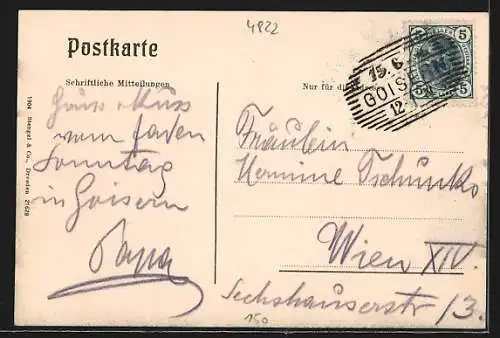 4822
Postkarte
Schriftliche Mitteilungen
Nur für die
5 5
15. 6
GOIS
12
Gruss u Kuss
vom
Sonntag
in Goisern
Papa
Fräulein
Hermine Tschunko
Wien XIV.
Sechshauserstr 13.
150
1904 Stengel & Co., Dresden